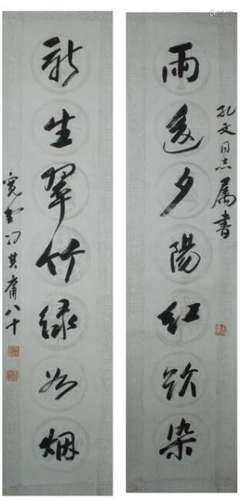 雨过夕陽红欲染
孔文同志属书
新生翠竹绿如烟
宽堂冯其庸八十